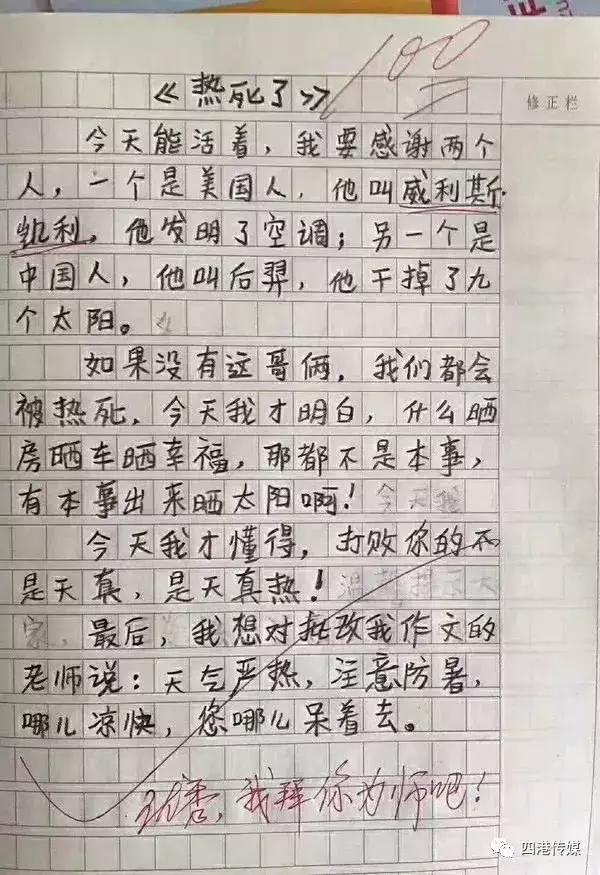 100
修正栏
《热死了》
今天能活着，我要感谢两个
人，一个是美国人，他叫威利斯·
凯利，他发明了空调；另一个是
中国人，他叫后羿，他干掉了九
个太阳。
如果没有这哥俩，我们都会
被热死，今天我才明白，什么晒
房晒车晒幸福，那都不是本事，
有本事出来晒太阳啊！今天
今天我才懂得，打败你的不
是天真，是天真热！温馨提示大
家，最后，我想对批改我作文的
老师说：天气严热，注意防暑，
哪儿凉快，您哪儿呆着去。
我拜你为师吧！
四港传媒